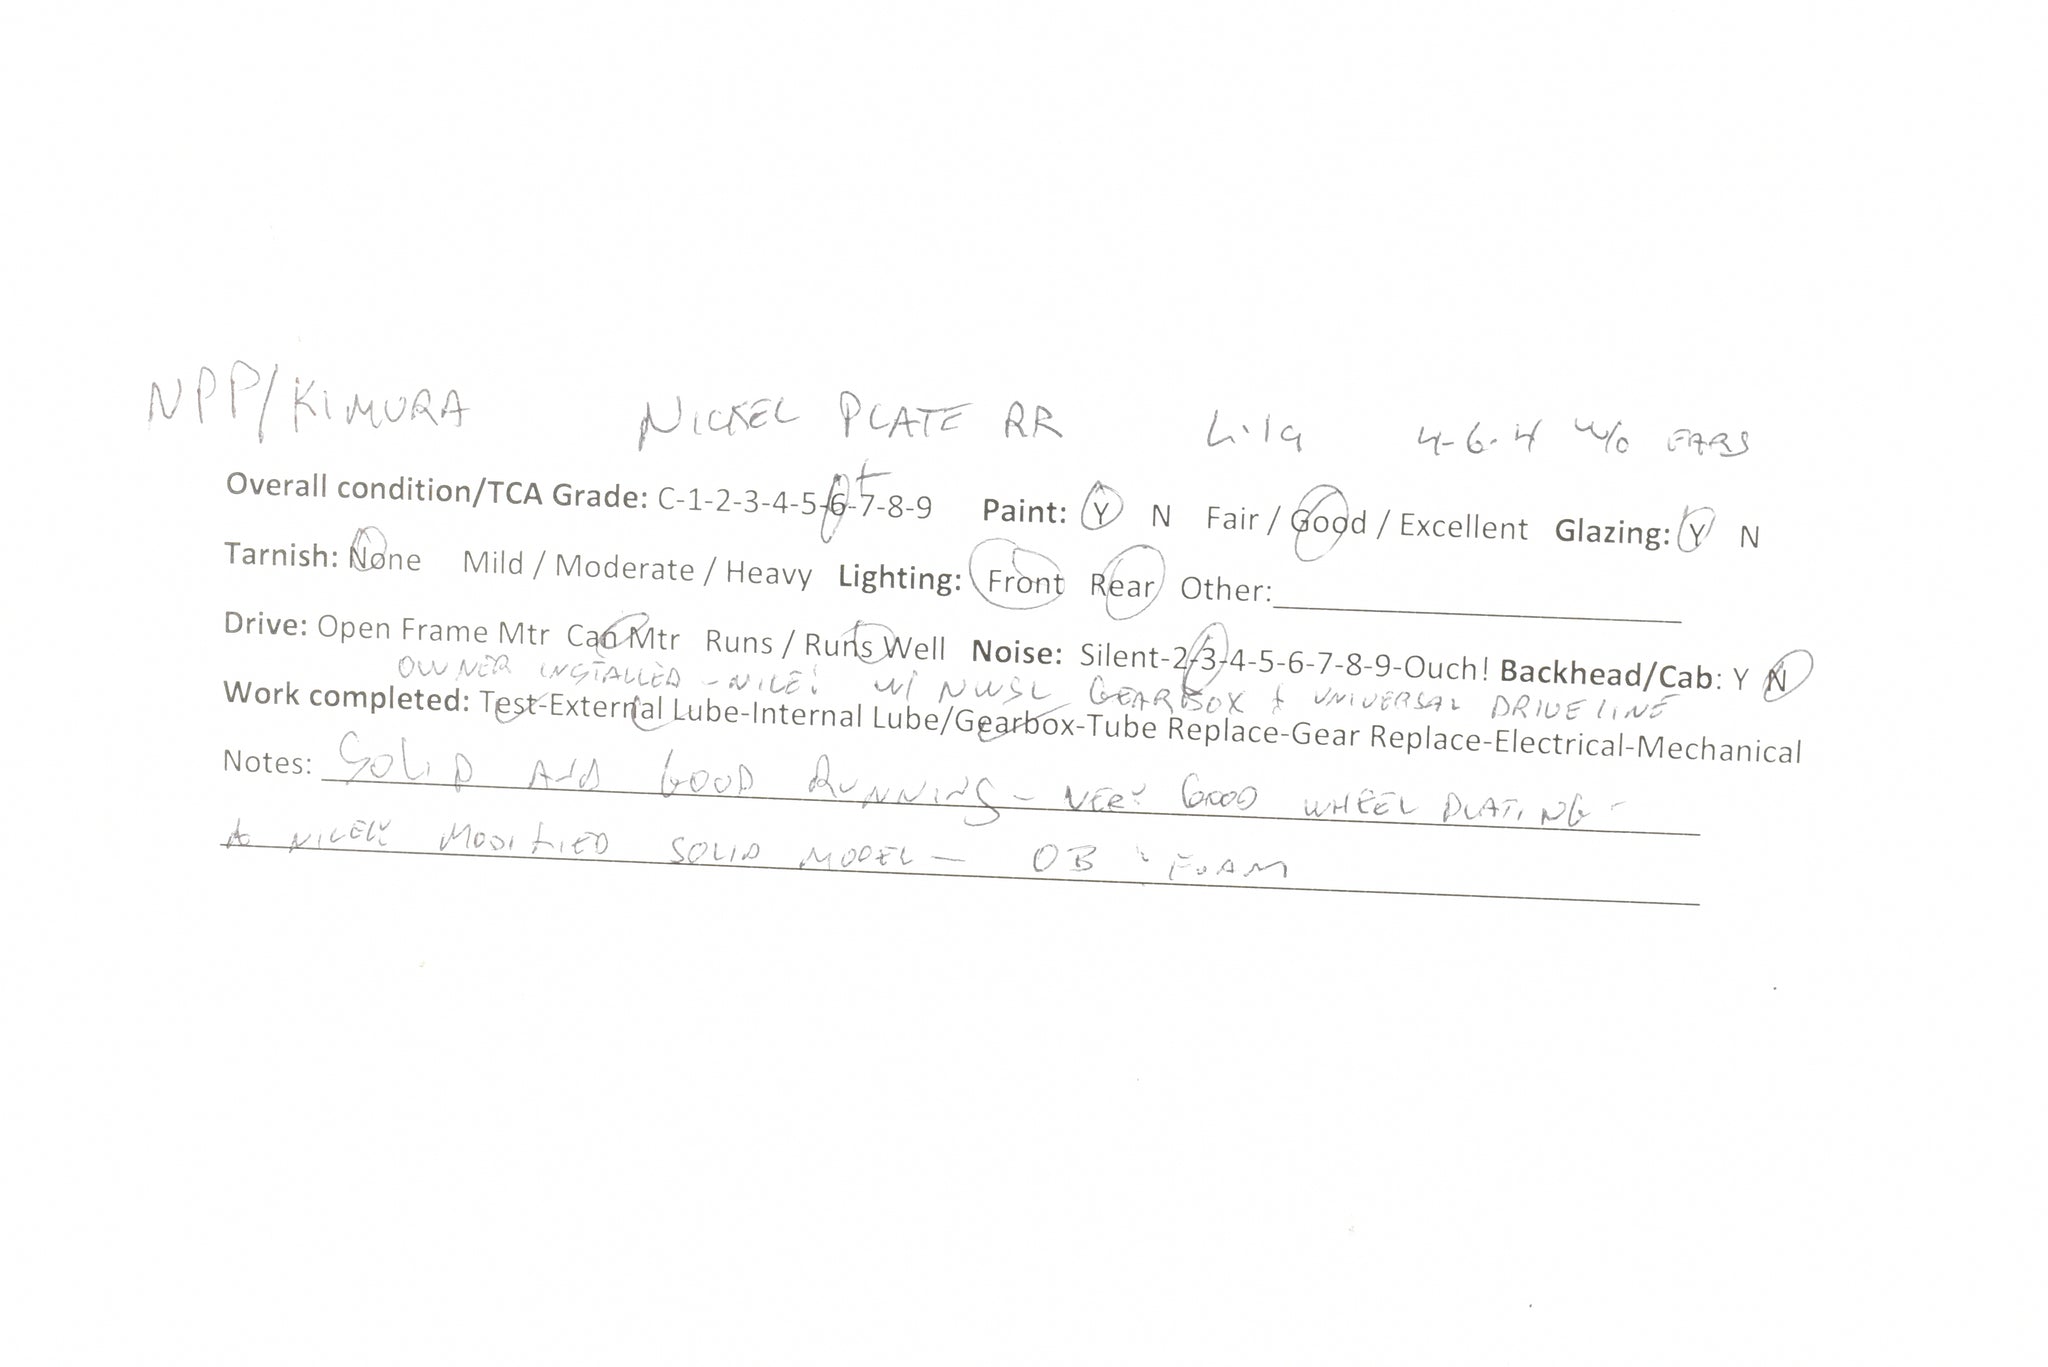 NPP/KIMURA NICKEL PLATE RR L-1a 4-6-4 W/O EARS
Overall condition/TCA Grade: C-1-2-3-4-5-6-7-8-9 + Paint: Y N Fair / Good / Excellent Glazing: Y N
Tarnish: None Mild / Moderate / Heavy Lighting: Front Rear Other:
Drive: Open Frame Mtr Can Mtr Runs / Runs Well Noise: Silent-2-3-4-5-6-7-8-9-Ouch! Backhead/Cab: Y N
OWNER INSTALLED - NICE! W/ NWSL GEARBOX & UNIVERSAL DRIVELINE
Work completed: Test-External Lube-Internal Lube/Gearbox-Tube Replace-Gear Replace-Electrical-Mechanical
Notes: SOLID AND GOOD RUNNING - VERY GOOD WHEEL PLATING -
A NICELY MODIFIED SOLID MODEL - OB & FOAM